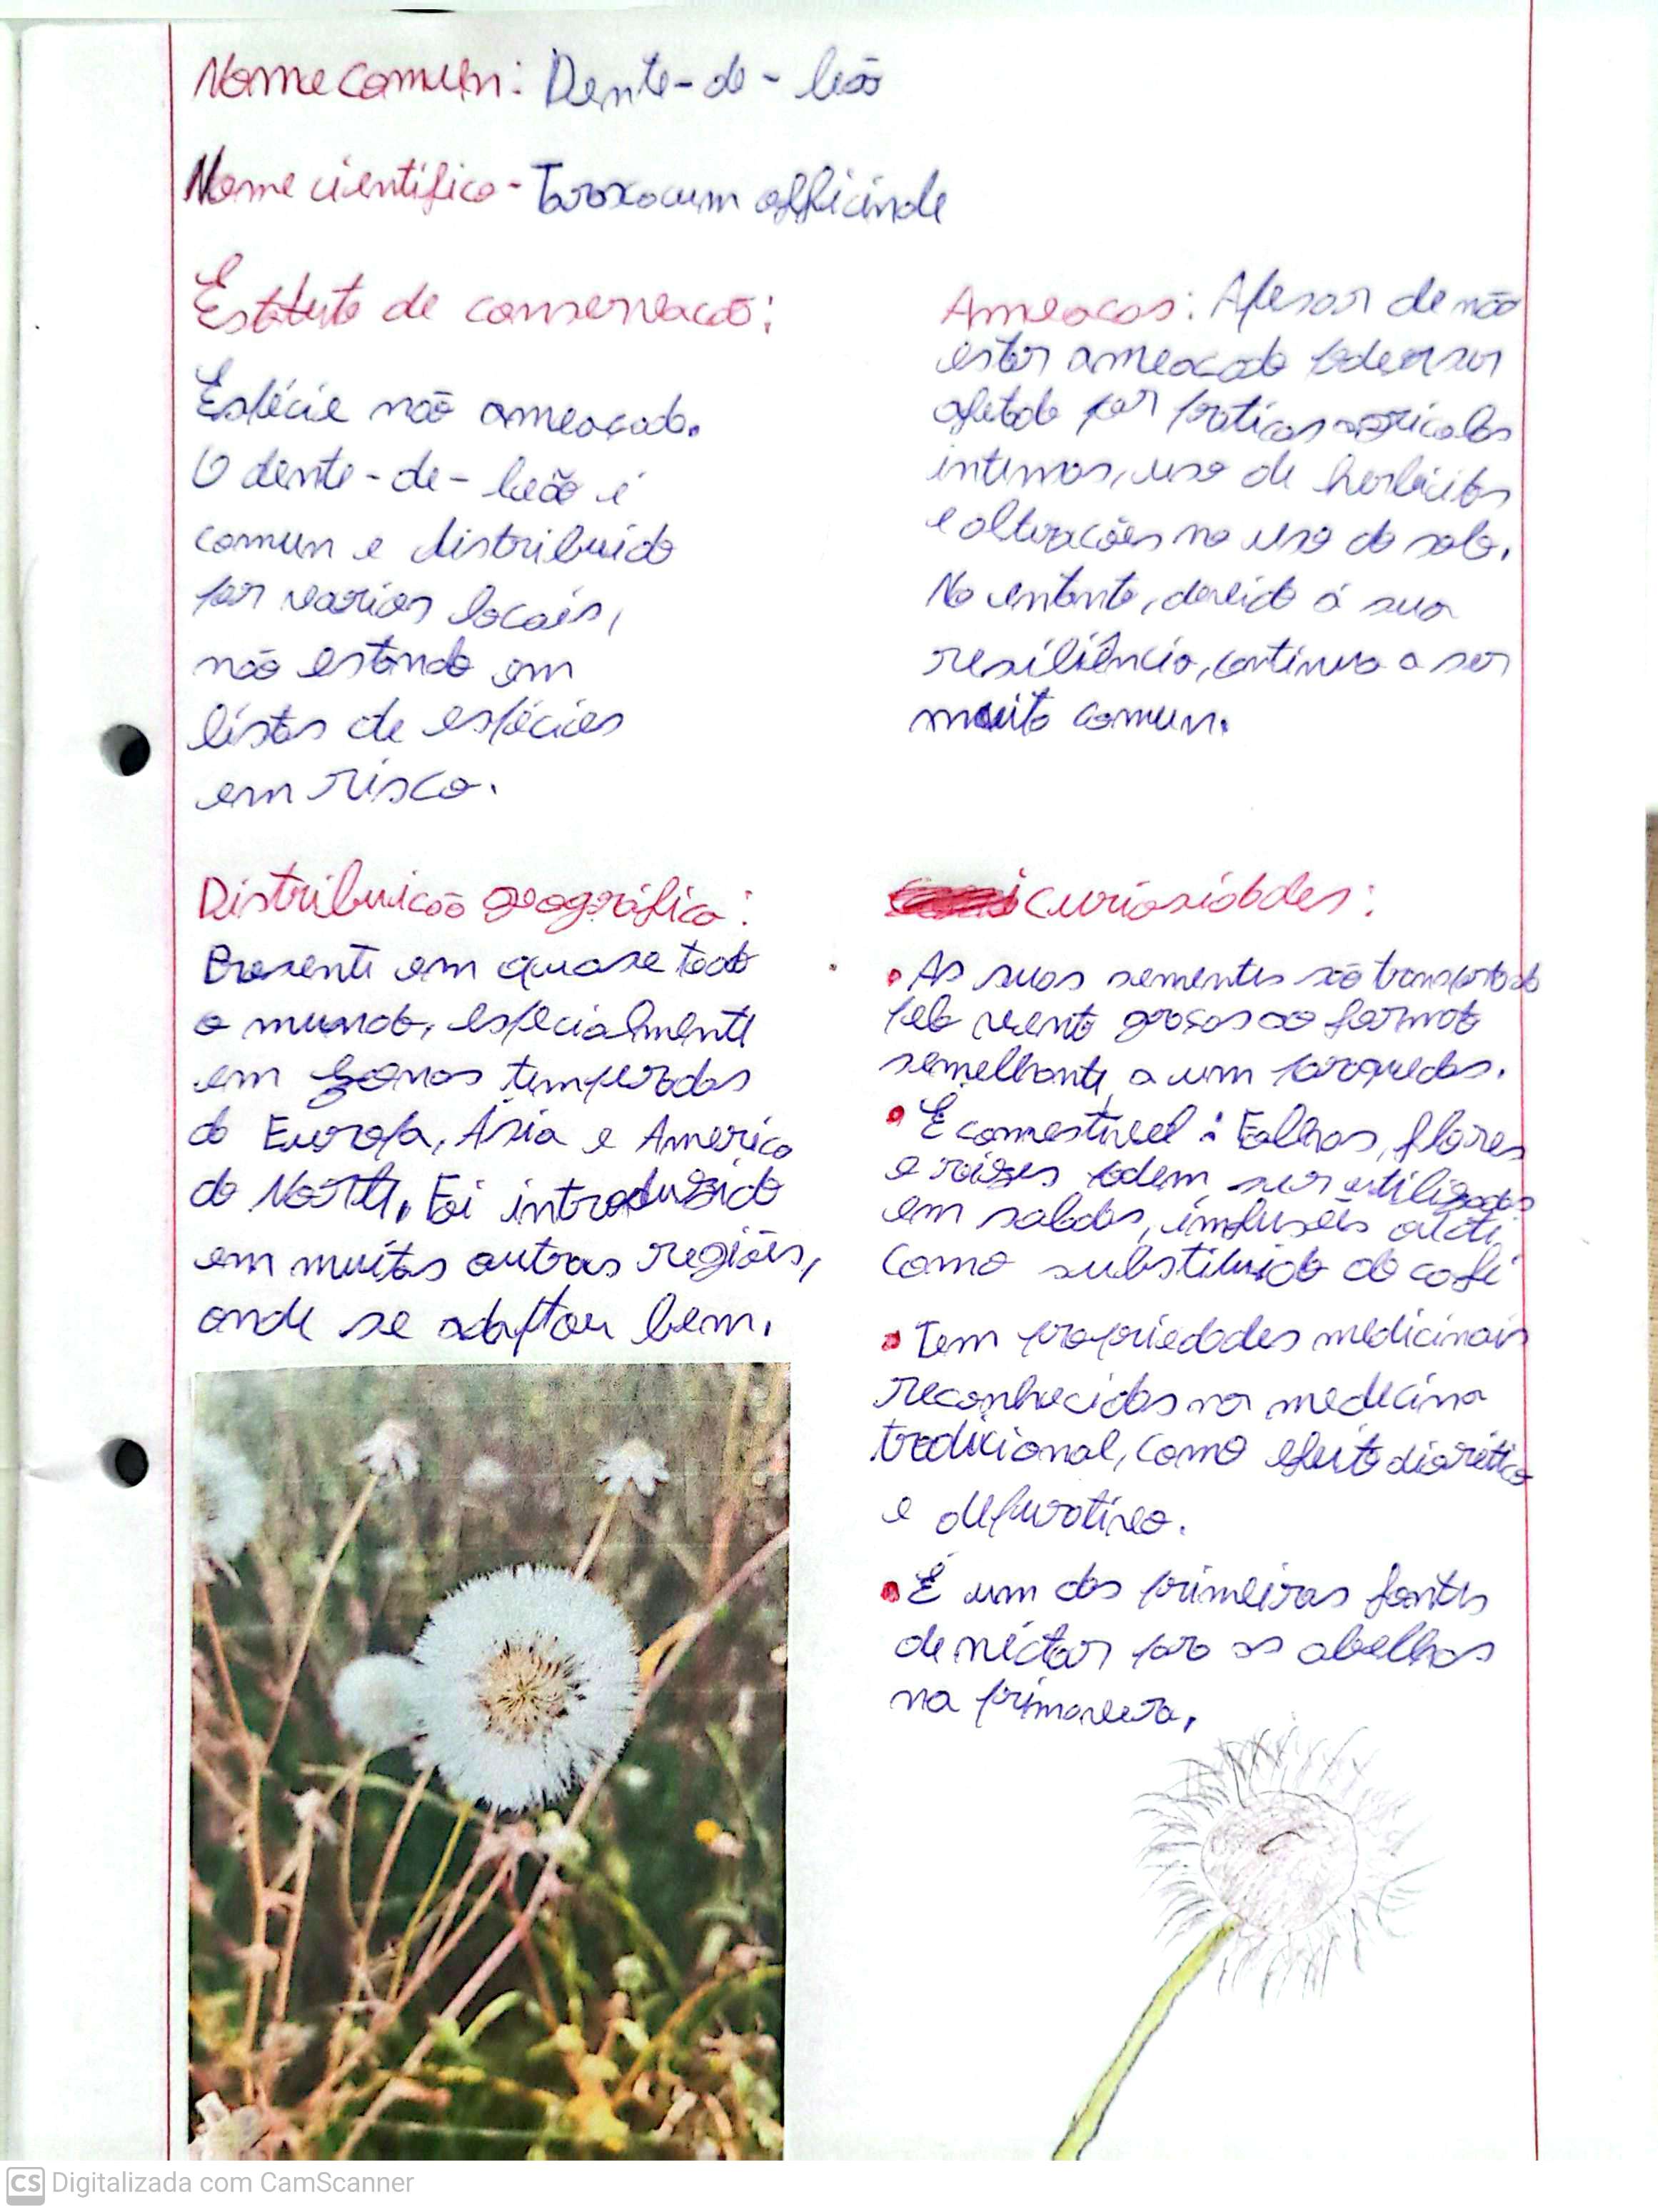 Nome comum: Dente-de-leão
Nome cientifico - Taraxacum officinale
Estatuto de conservacão:
Espécie não ameaçada.
O dente-de-leão é
comum e distribuido
por varios locais,
não estando em
listas de espécies
em risco.
Ameacas: Apesar de não
estar ameacado podem ser
afetado por praticas agricolas
intensas, uso de herbicidas
e alteracões no uso do solo.
No entanto, devido á sua
resiliência, continua a ser
muito comum.
Distribuicão geográfica:
Presente em quase todo
o mundo, especialmente
em zonas temperadas
da Europa, Ásia e America
do Norte. Foi introduzido
em muitas outras regiões,
onde se adaptou bem.
curiosidades:
• As suas sementes são transportadas
pelo vento graças ao formato
semelhante a um paraquedas.
• É comestivel: Folhas, flores
e raizes podem ser utilizadas
em saladas, infusões e até
como substituido do café
• Tem propriedades medicinais
reconhecidas na medicina
tradicional, como efeito diorético
e depurativo.
• É um das primeiras fontes
de néctar para as abelhas
na primavera.
CS Digitalizada com CamScanner